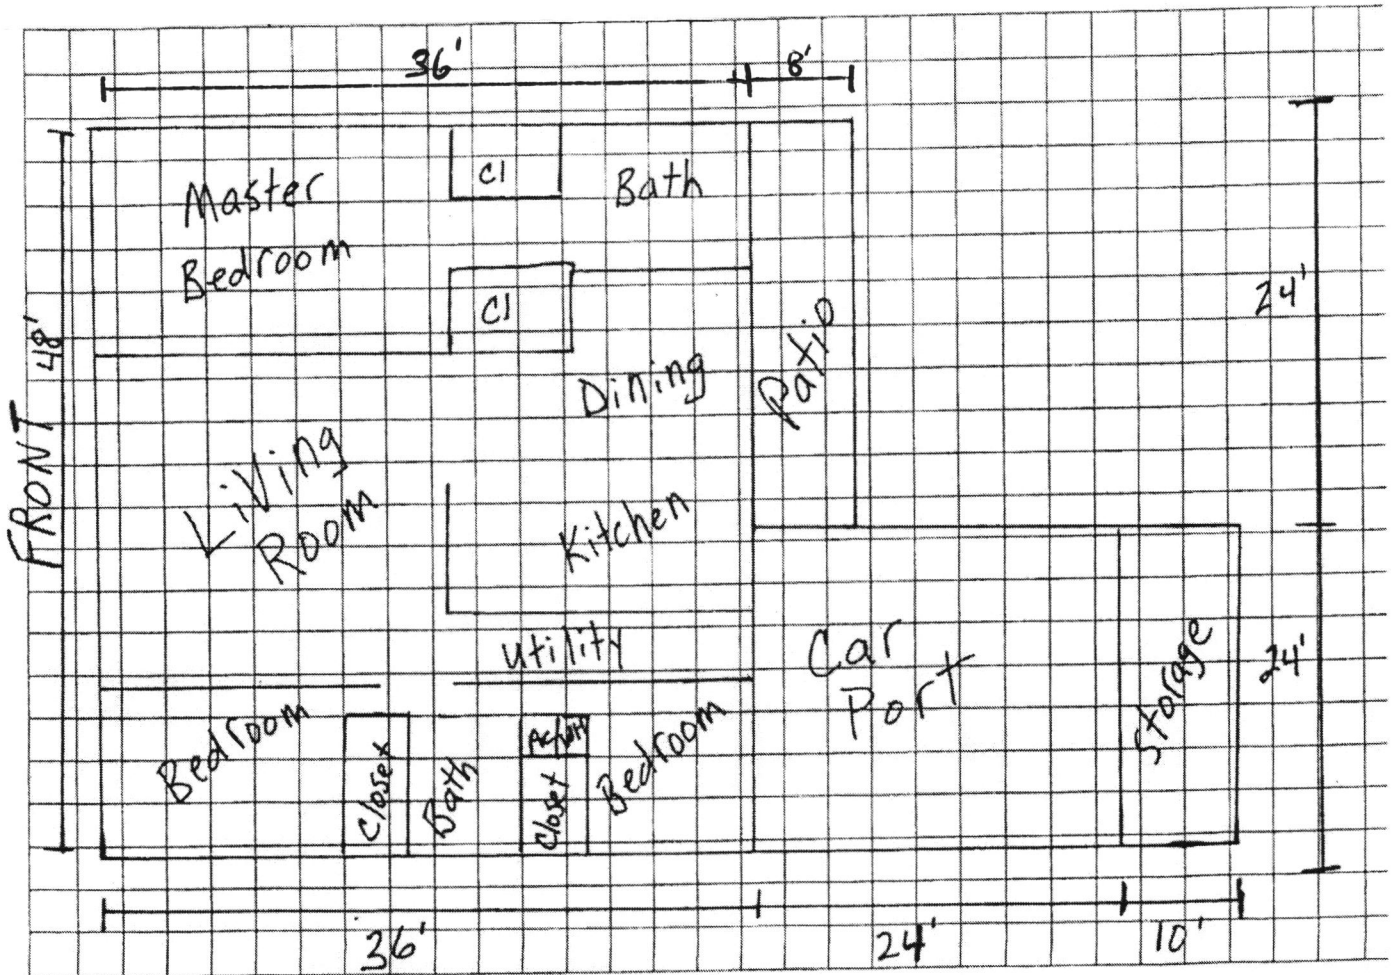 36'
8'
Master
Bedroom
Cl
Bath
Cl
24'
FRONT 48'
Dining
Patio
Living
Room
Kitchen
Utility
Car
Port
Storage
24'
Bedroom
Closet
Bath
Closet
Bedroom
36'
24'
10'